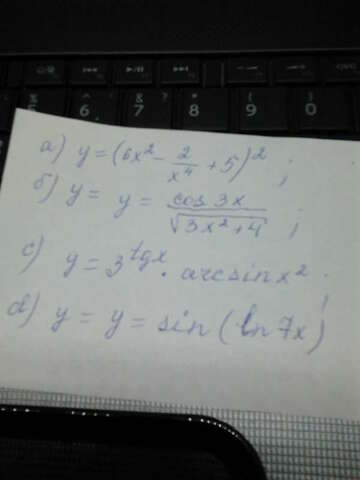 5 6 7 8 9 0
а) y = (6x² - 2/x⁴ + 5)² ;
б) y = y = cos 3x / √(3x²+4) ;
c) y = 3^tgx · arcsin x² ;
d) y = y = sin (ln 7x)